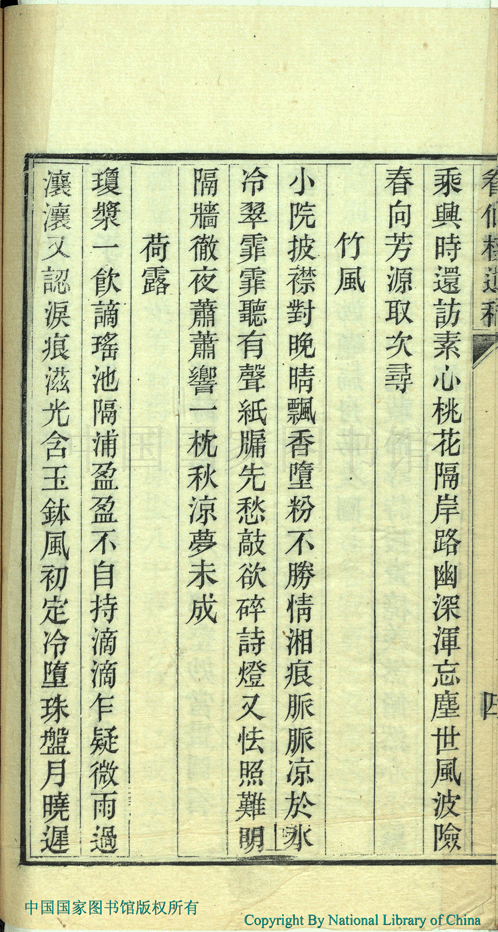 乘興時還訪素心桃花隔岸路幽深渾忘塵世風波險
春向芳源取次尋
竹風
小院披襟對晚晴飄香墮粉不勝情湘痕脈脈凉於水
冷翠霏霏聽有聲紙牖先愁敲欲碎詩燈又怯照難明
隔牆徹夜蕭蕭響一枕秋涼夢未成
荷露
瓊漿一飲謫瑤池隔浦盈盈不自持滴滴乍疑微雨過
瀼瀼又認淚痕滋光含玉鉢風初定冷墮珠盤月曉遲
中国国家图书馆版权所有
Copyright By National Library of China